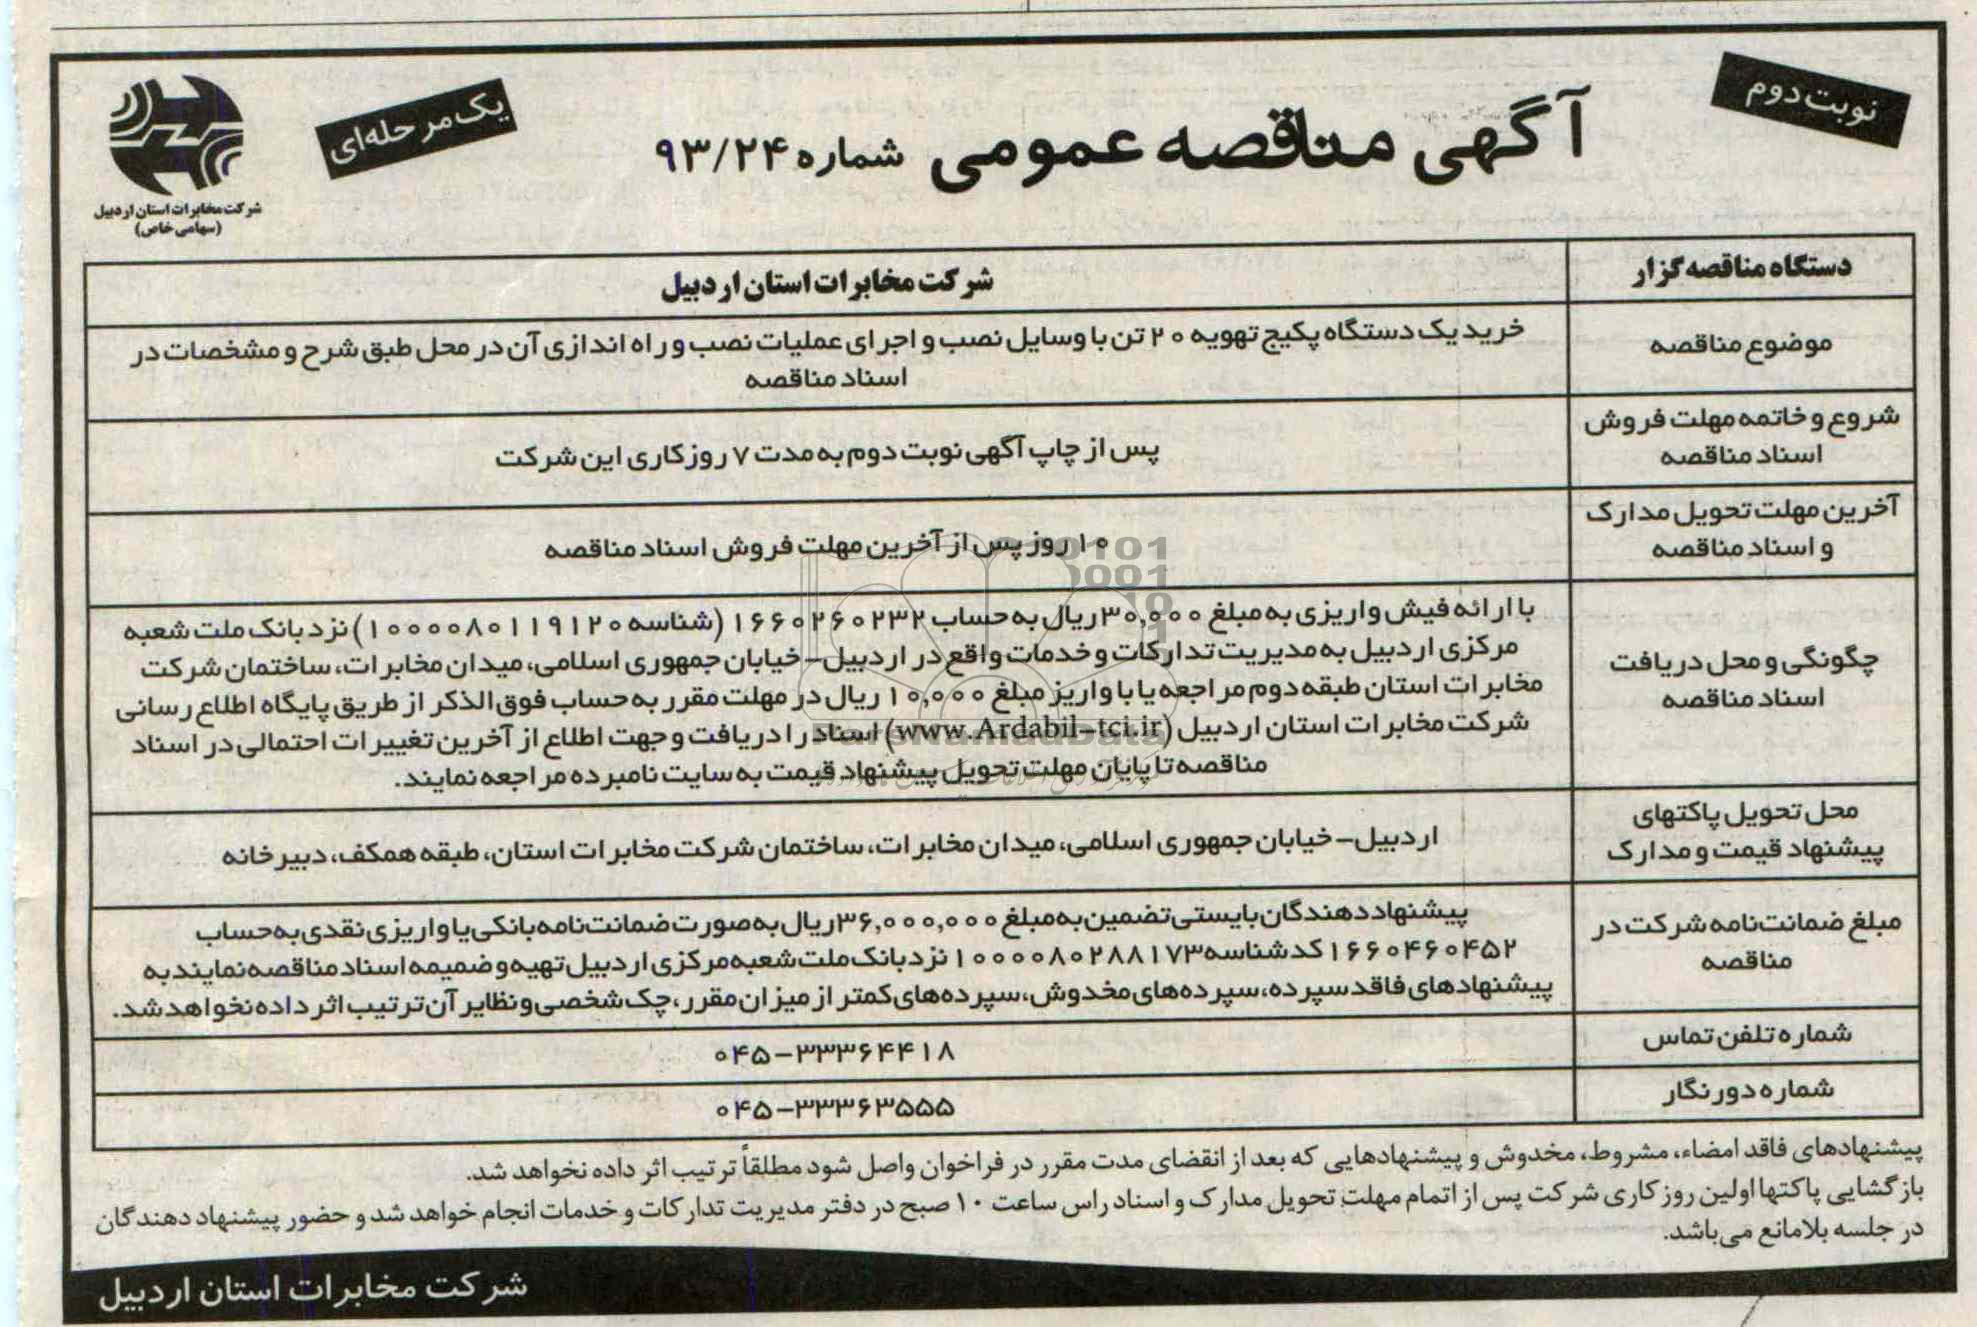 نوبت دوم
آگهی مناقصه عمومی شماره ۹۳/۲۴
یک مرحله‌ای
شرکت مخابرات استان اردبیل
(سهامی خاص)
دستگاه مناقصه گزار
شرکت مخابرات استان اردبیل
موضوع مناقصه
خرید یک دستگاه پکیج تهویه ۲۰ تن با وسایل نصب و اجرای عملیات نصب و راه اندازی آن در محل طبق شرح و مشخصات در
اسناد مناقصه
شروع و خاتمه مهلت فروش
اسناد مناقصه
پس از چاپ آگهی نوبت دوم به مدت ۷ روز کاری این شرکت
آخرین مهلت تحویل مدارک
و اسناد مناقصه
۱۰ روز پس از آخرین مهلت فروش اسناد مناقصه
چگونگی و محل دریافت
اسناد مناقصه
با ارائه فیش واریزی به مبلغ ۳۰,۰۰۰ ریال به حساب ۱۶۶۰۲۶۰۲۳۲ (شناسه ۱۰۰۰۰۸۰۱۱۹۱۲۰) نزد بانک ملت شعبه
مرکزی اردبیل به مدیریت تدارکات و خدمات واقع در اردبیل– خیابان جمهوری اسلامی، میدان مخابرات، ساختمان شرکت
مخابرات استان طبقه دوم مراجعه یا با واریز مبلغ ۱۰,۰۰۰ ریال در مهلت مقرر به حساب فوق الذکر از طریق پایگاه اطلاع رسانی
شرکت مخابرات استان اردبیل (www.Ardabil-tci.ir) اسناد را دریافت و جهت اطلاع از آخرین تغییرات احتمالی در اسناد
مناقصه تا پایان مهلت تحویل پیشنهاد قیمت به سایت نامبرده مراجعه نمایند.
محل تحویل پاکتهای
پیشنهاد قیمت و مدارک
اردبیل– خیابان جمهوری اسلامی، میدان مخابرات، ساختمان شرکت مخابرات استان، طبقه همکف، دبیرخانه
مبلغ ضمانت‌نامه شرکت در
مناقصه
پیشنهاد دهندگان بایستی تضمین به مبلغ ۳۶,۰۰۰,۰۰۰ ریال به صورت ضمانت‌نامه بانکی یا واریزی نقدی به حساب
۱۶۶۰۴۶۰۴۵۲ کد شناسه ۱۰۰۰۰۸۰۲۸۸۱۷۳ نزد بانک ملت شعبه مرکزی اردبیل تهیه و ضمیمه اسناد مناقصه نمایند به
پیشنهادهای فاقد سپرده، سپرده‌های مخدوش، سپرده‌های کمتر از میزان مقرر، چک شخصی و نظایر آن ترتیب اثر داده نخواهد شد.
شماره تلفن تماس
۰۴۵–۳۳۳۶۴۴۱۸
شماره دورنگار
۰۴۵–۳۳۳۶۳۵۵۵
پیشنهادهای فاقد امضاء، مشروط، مخدوش و پیشنهادهایی که بعد از انقضای مدت مقرر در فراخوان واصل شود مطلقاً ترتیب اثر داده نخواهد شد.
بازگشایی پاکتها اولین روز کاری شرکت پس از اتمام مهلت تحویل مدارک و اسناد راس ساعت ۱۰ صبح در دفتر مدیریت تدارکات و خدمات انجام خواهد شد و حضور پیشنهاد دهندگان
در جلسه بلامانع می‌باشد.
شرکت مخابرات استان اردبیل